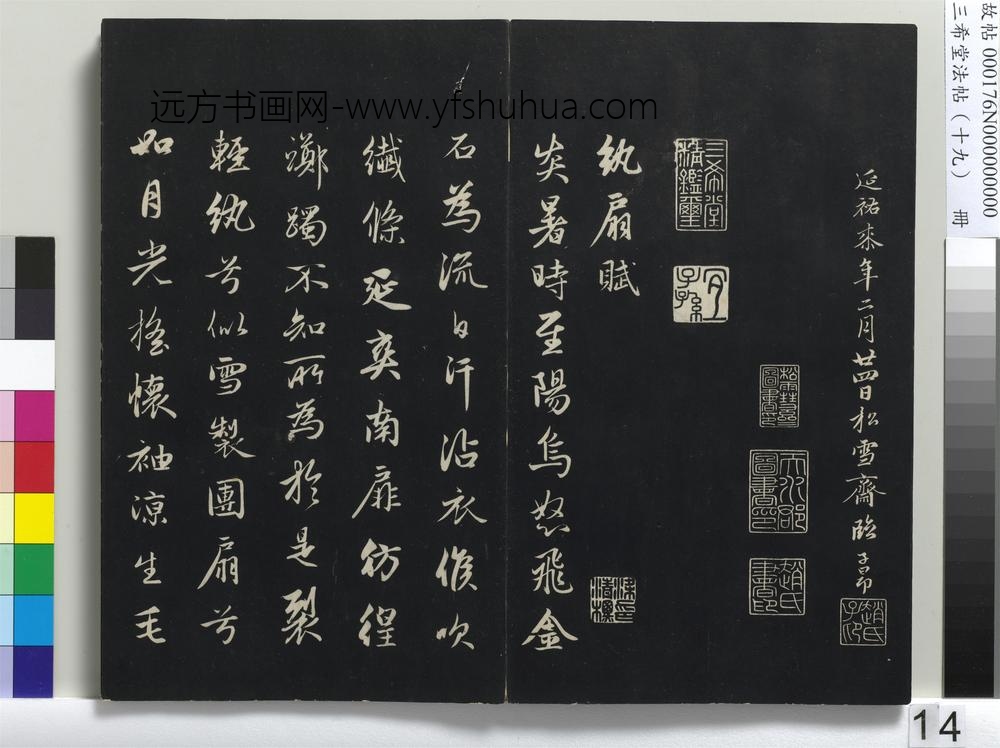 故帖 000176N00000000
三希堂法帖(十九) 冊
远方书画网-www.yfshuhua.com
延祐來年二月廿四日松雪齋臨 子昂
趙氏子昂
松雪齋圖書印
天水郡圖書印
趙氏書印
三希堂精鑑璽
宜子孫
紈扇賦
炎暑時至陽烏怒飛金
石為流白汗沾衣候吹
纖條延爽南扉彷徨
躑躅不知所為於是裂
輕紈兮似雪製團扇兮
如月光搖懷袖涼生毛
14